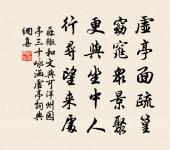 虛亭面疏篁
窈窕眾景聚
更與坐中人
行尋望來處
蘇轍和文與可洋州園
亭三十詠涵虛亭詞典
網